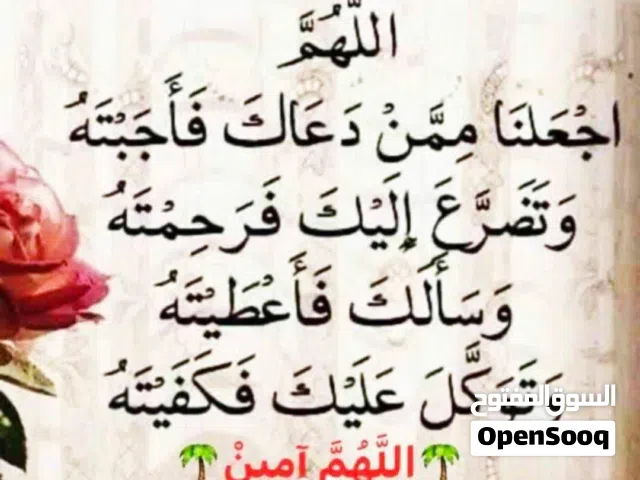 اللَّهُمَّ
اجْعَلْنَا مِمَّنْ دَعَاكَ فَأَجَبْتَهُ
وَتَضَرَّعَ إِلَيْكَ فَرَحِمْتَهُ
وَسَأَلَكَ فَأَعْطَيْتَهُ
وَتَوَكَّلَ عَلَيْكَ فَكَفَيْتَهُ
السوق المفتوح
OpenSooq
🌴اللَّهُمَّ آمِينْ🌴